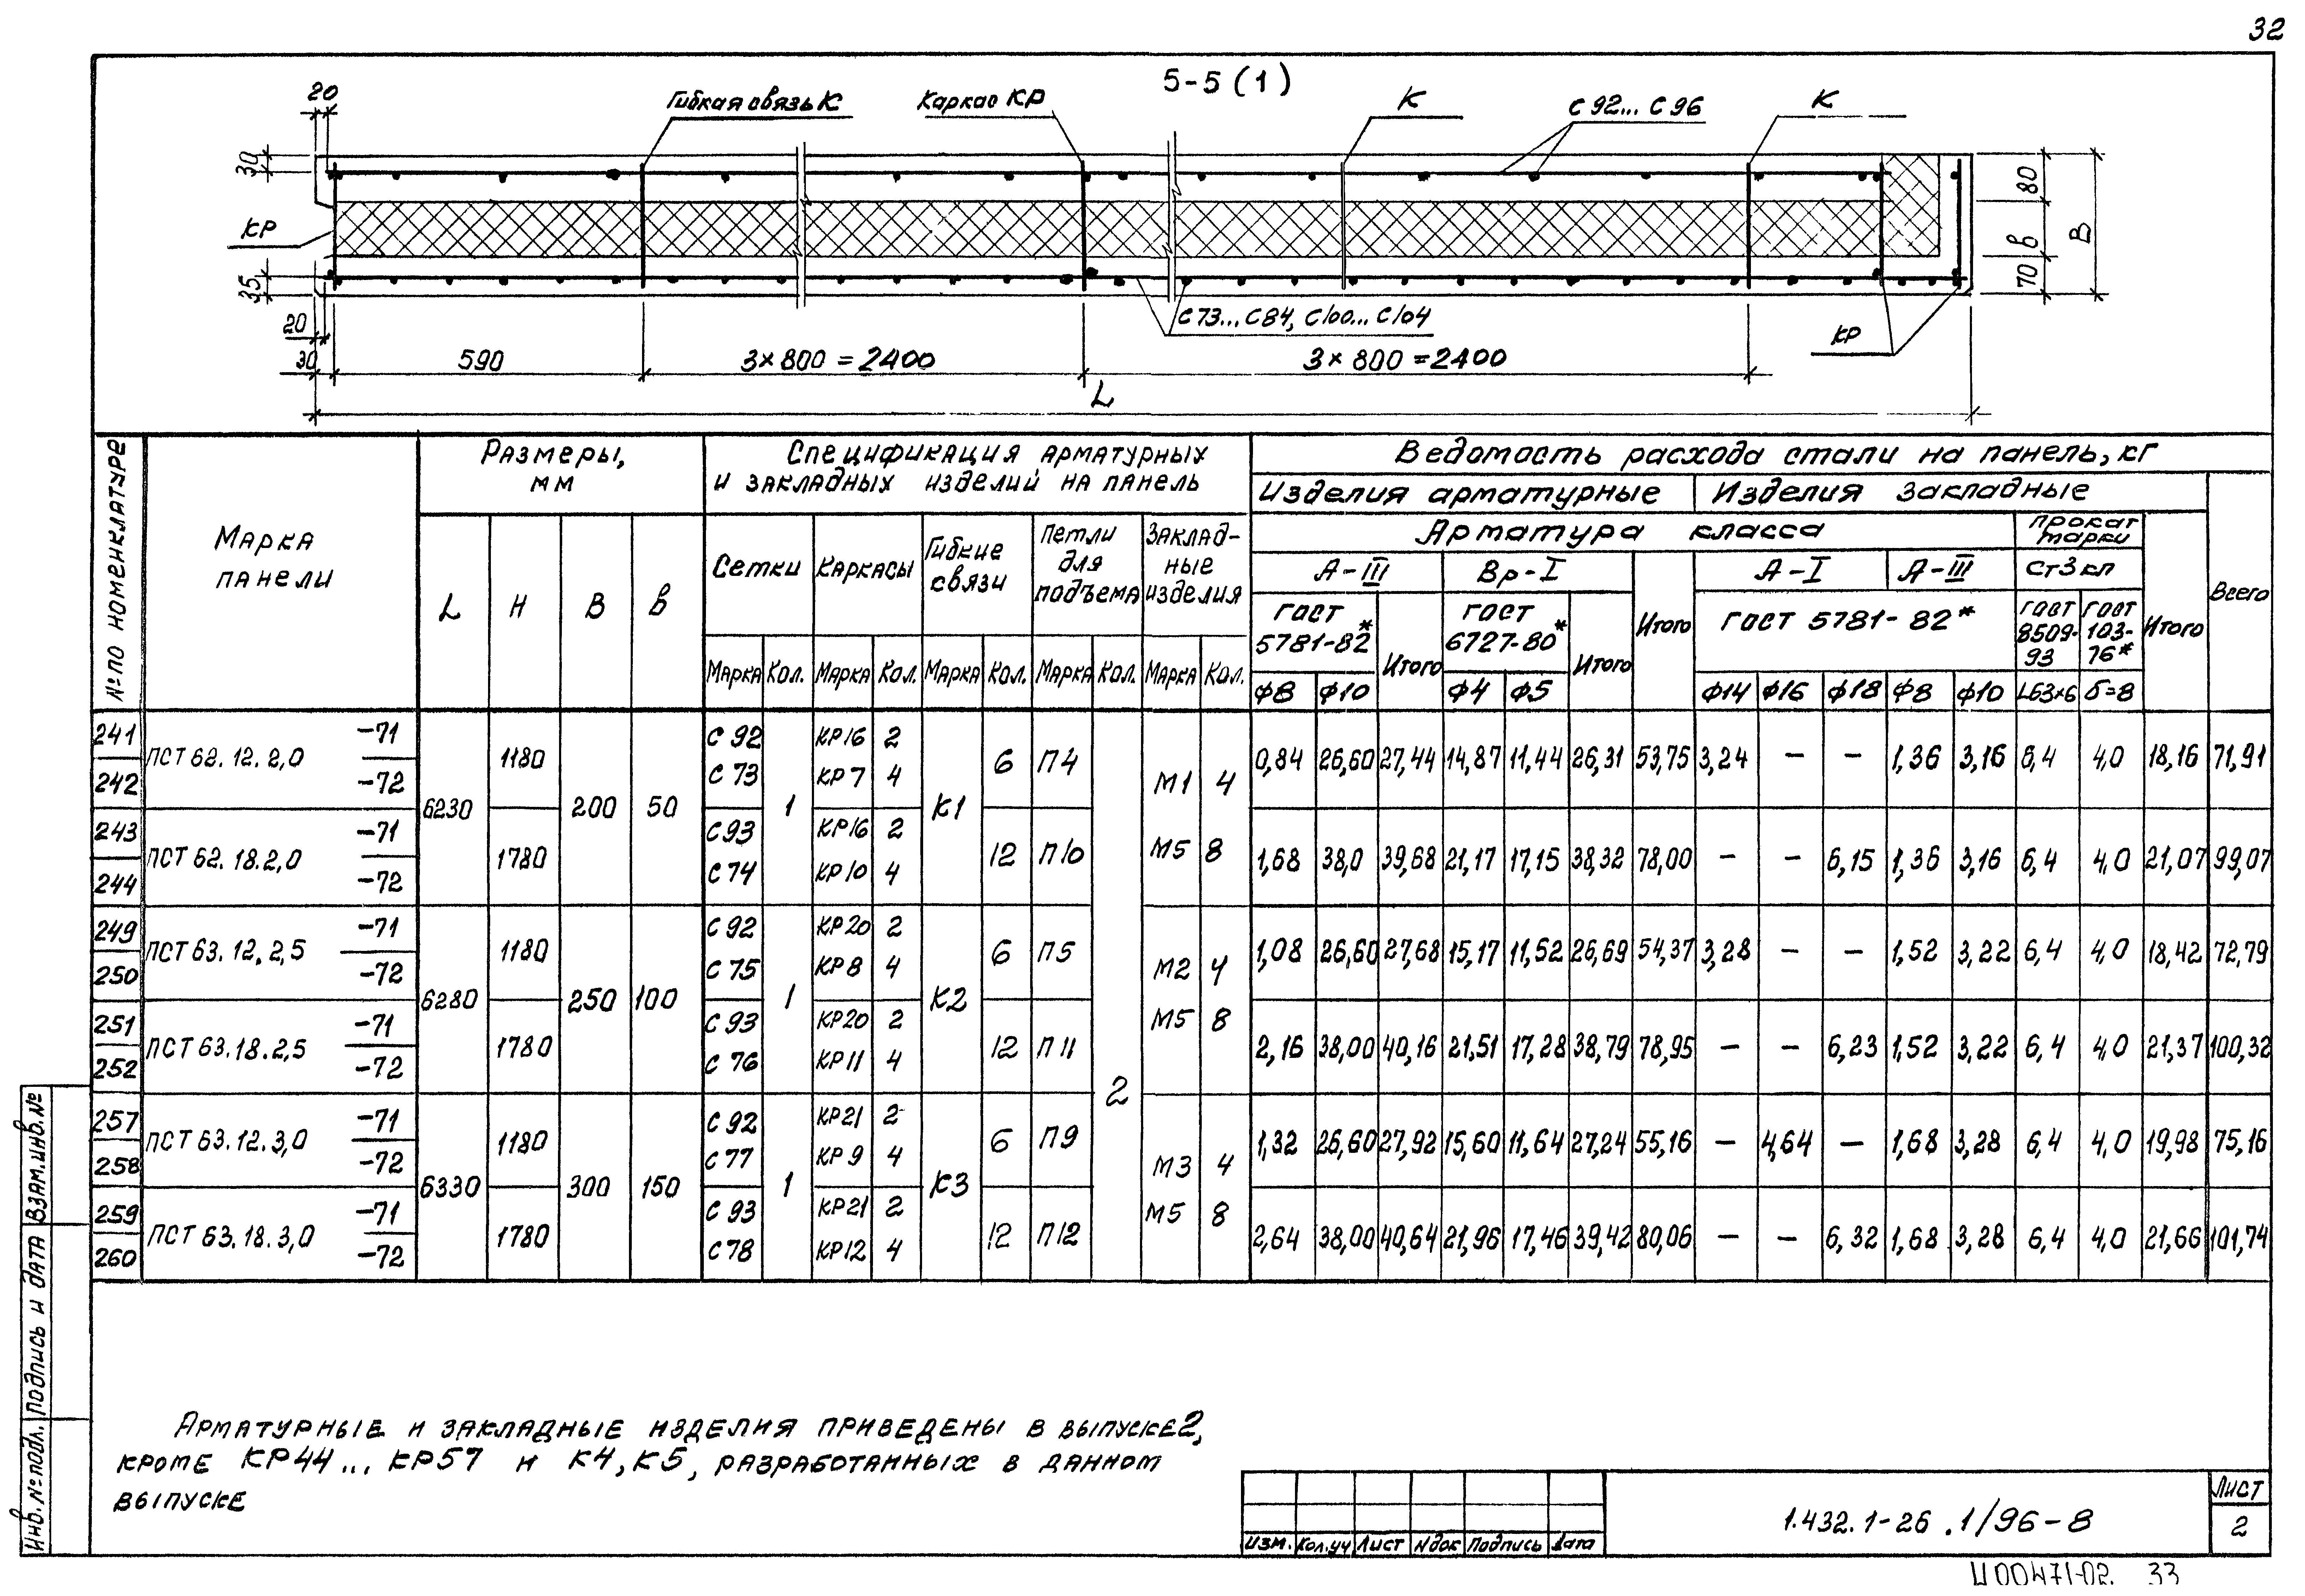 32
5-5 (1)
20
Гибкая связь К
Каркас КР
К
С 92... С 96
К
30
КР
35
20
30
80
в
70
В
С 73... С 84, С100... С104
КР
590
3×800=2400
3×800=2400
L
№ по номенклатуре
Марка панели
Размеры, мм
Спецификация арматурных и закладных изделий на панель
Ведомость расхода стали на панель, кг
Изделия арматурные
Изделия закладные
Всего
Арматура класса
Прокат марки
L
Н
В
в
Сетки
Каркасы
Гибкие связи
Петли для подъема
Закладные изделия
А-III
Вр-I
Итого
А-I
А-III
Ст3кп
Итого
ГОСТ 5781-82*
Итого
ГОСТ 6727-80*
Итого
ГОСТ 5781-82*
ГОСТ 8509-93
ГОСТ 103-76*
Марка Кол. Марка Кол. Марка Кол. Марка Кол. Марка Кол.
ф8 ф10 ф4 ф5 ф14 ф16 ф18 ф8 ф10 L63×6 δ=8
241
242
ПСТ 62.12.2,0 -71 -72
6230 1180 200 50
С 92
С 73
1
КР16 2
КР7 4
К1
6 П4
2
М1 4
М5 8
0,84 26,60 27,44 14,87 11,44 26,31 53,75 3,24 – – 1,36 3,16 6,4 4,0 18,16 71,91
243
244
ПСТ 62.18.2,0 -71 -72
1780
С 93
С 74
КР16 2
КР10 4
12 П10
1,68 38,0 39,68 21,17 17,15 38,32 78,00 – – 6,15 1,36 3,16 6,4 4,0 21,07 99,07
249
250
ПСТ 63.12.2,5 -71 -72
6280 1180 250 100
С 92
С 75
1
КР20 2
КР8 4
К2
6 П5
М2 4
М5 8
1,08 26,60 27,68 15,17 11,52 26,69 54,37 3,28 – – 1,52 3,22 6,4 4,0 18,42 72,79
251
252
ПСТ 63.18.2,5 -71 -72
1780
С 93
С 76
КР20 2
КР11 4
12 П11
2,16 38,00 40,16 21,51 17,28 38,79 78,95 – – 6,23 1,52 3,22 6,4 4,0 21,37 100,32
257
258
ПСТ 63.12.3,0 -71 -72
6330 1180 300 150
С 92
С 77
1
КР21 2
КР9 4
К3
6 П9
М3 4
М5 8
1,32 26,60 27,92 15,60 11,64 27,24 55,16 – 4,64 – 1,68 3,28 6,4 4,0 19,98 75,16
259
260
ПСТ 63.18.3,0 -71 -72
1780
С 93
С 78
КР21 2
КР12 4
12 П12
2,64 38,00 40,64 21,96 17,46 39,42 80,06 – – 6,32 1,68 3,28 6,4 4,0 21,66 101,74
Арматурные и закладные изделия приведены в выпуске 2,
кроме КР44... КР57 и К4, К5, разработанных в данном
выпуске
Инв. № подл. Подпись и дата Взам. инв. №
Изм. Кол.уч Лист Nдок Подпись Дата
1.432.1-26.1/96-8
Лист
2
Ц00471-02. 33